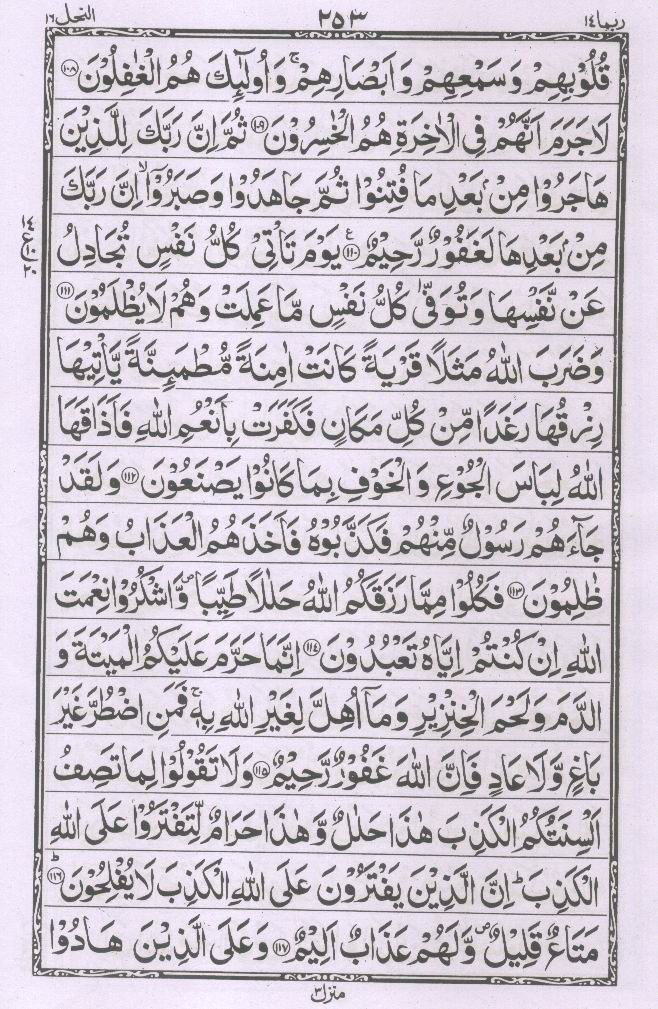 ربما ١٤ ٢٥٣ النحل ١٦
قُلُوْبِهِمْ وَسَمْعِهِمْ وَاَبْصَارِهِمْ ۚ وَاُولٰٓئِكَ هُمُ الْغٰفِلُوْنَ ۝١٠٨
لَا جَرَمَ اَنَّهُمْ فِى الْاٰخِرَةِ هُمُ الْخٰسِرُوْنَ ۝١٠٩ ثُمَّ اِنَّ رَبَّكَ لِلَّذِيْنَ
هَاجَرُوْا مِنْۢ بَعْدِ مَا فُتِنُوْا ثُمَّ جَاهَدُوْا وَصَبَرُوْۤا ۙ اِنَّ رَبَّكَ
مِنْۢ بَعْدِهَا لَغَفُوْرٌ رَّحِيْمٌ ۝١١٠ ع يَوْمَ تَاْتِىْ كُلُّ نَفْسٍ تُجَادِلُ
عَنْ نَّفْسِهَا وَتُوَفّٰى كُلُّ نَفْسٍ مَّا عَمِلَتْ وَهُمْ لَا يُظْلَمُوْنَ ۝١١١
وَضَرَبَ اللّٰهُ مَثَلًا قَرْيَةً كَانَتْ اٰمِنَةً مُّطْمَئِنَّةً يَّاْتِيْهَا
رِزْقُهَا رَغَدًا مِّنْ كُلِّ مَكَانٍ فَكَفَرَتْ بِاَنْعُمِ اللّٰهِ فَاَذَاقَهَا
اللّٰهُ لِبَاسَ الْجُوْعِ وَالْخَوْفِ بِمَا كَانُوْا يَصْنَعُوْنَ ۝١١٢ وَلَقَدْ
جَآءَهُمْ رَسُوْلٌ مِّنْهُمْ فَكَذَّبُوْهُ فَاَخَذَهُمُ الْعَذَابُ وَهُمْ
ظٰلِمُوْنَ ۝١١٣ فَكُلُوْا مِمَّا رَزَقَكُمُ اللّٰهُ حَلٰلًا طَيِّبًا ۖ وَّاشْكُرُوْا نِعْمَتَ
اللّٰهِ اِنْ كُنْتُمْ اِيَّاهُ تَعْبُدُوْنَ ۝١١٤ اِنَّمَا حَرَّمَ عَلَيْكُمُ الْمَيْتَةَ وَ
الدَّمَ وَلَحْمَ الْخِنْزِيْرِ وَمَاۤ اُهِلَّ لِغَيْرِ اللّٰهِ بِهٖ ۚ فَمَنِ اضْطُرَّ غَيْرَ
بَاغٍ وَّلَا عَادٍ فَاِنَّ اللّٰهَ غَفُوْرٌ رَّحِيْمٌ ۝١١٥ وَلَا تَقُوْلُوْا لِمَا تَصِفُ
اَلْسِنَتُكُمُ الْكَذِبَ هٰذَا حَلٰلٌ وَّهٰذَا حَرَامٌ لِّتَفْتَرُوْا عَلَى اللّٰهِ
الْكَذِبَ ؕ اِنَّ الَّذِيْنَ يَفْتَرُوْنَ عَلَى اللّٰهِ الْكَذِبَ لَا يُفْلِحُوْنَ ؕ ۝١١٦
مَتَاعٌ قَلِيْلٌ ۖ وَّلَهُمْ عَذَابٌ اَلِيْمٌ ۝١١٧ وَعَلَى الَّذِيْنَ هَادُوْا
منزل ٣